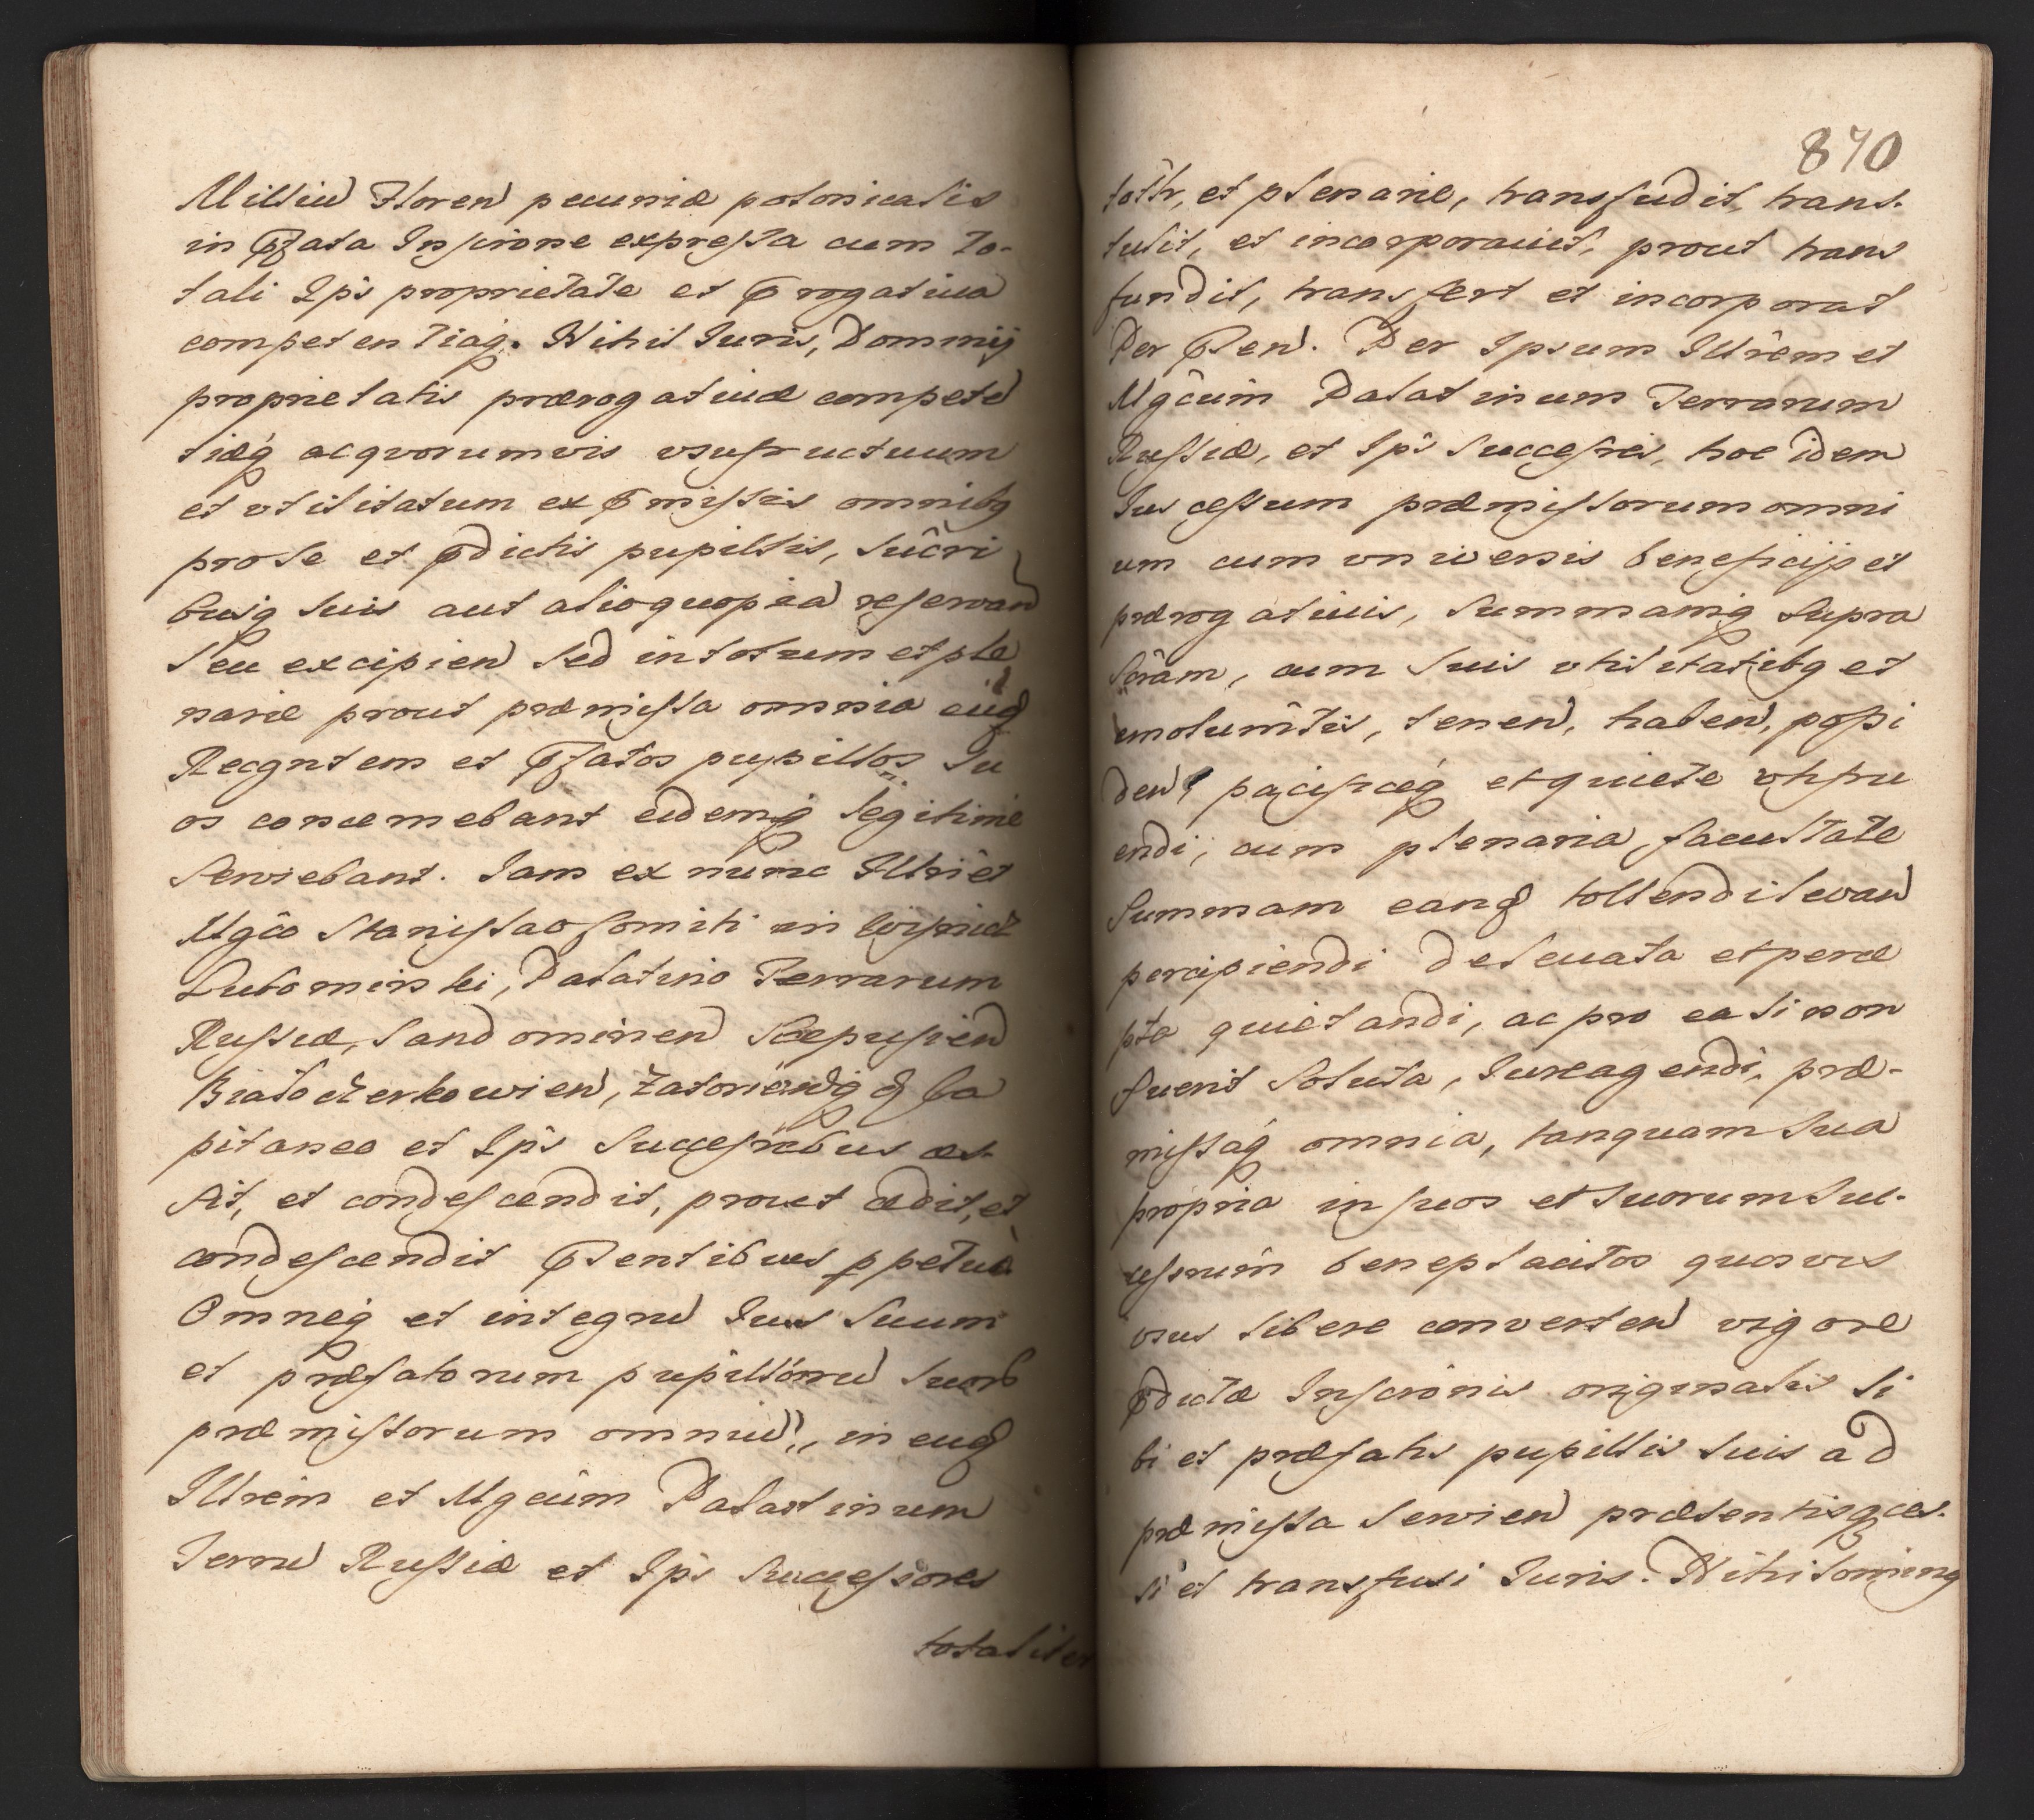 Milliū Floren̄ pecuniæ polonicalis
in p̄fata Inscr̄ione expressa cum to-
tali Ip̄s proprietate et p̄rogatiua
competentiaq̄. Nihil Iuris, Dominij
proprietatis prærogatiuæ compete͂
tiæq̄ acquorumvis vsufructuum
et vtilitatum ex p̄missis omnibq̄
pro se et p̄dictis pupillis, Succ̄ri
busq̄ suis aut alioquopia͂ reservan̄
seu excipien̄ sed in totum et ple
nariæ prout præmissa omnia eu͂d
Recgntem et p̄fatos pupillos su
os concernebant eidemq̄ legitime
serviebant. Iam ex nunc Illri et
Mgc̄o Stanislao Comiti in Wisnicz
Lubomirski, Palatino Terrarum
Russiæ, Sandomirien̄ Scepusien̄
Białocerkowien̄, Zatorien̄q̄ & Ca
pitaneo et Ip̄s Successribus ces-
sit, et condescendit, prout cedit, et
condescendit p̄sentibus p̱petuo
Omneq̄ et integrū Ius suum
et præfatorum pupillorū suorū
præmissorum omniū,, in eu͂d
Illrēm et Mgcūm Palatinum
Terrū Russiæ et Ip̄s Successores
totaliter
870
tottr, et plenarie, transfudit, trans-
tulit, et incorporauit, prout trans
fundit, transfert et incorporat
Per p̄sen̄. Per Ipsum Illrēm et
Mgcūm Palatinum Terrarum
Russiæ, et Ip̄s Successres, hoc idem
Ius cessum præmissorum omni
um cum vniversis beneficijs et
prærogatiuis, summamq̄ supra
scrām, cum suis vtilitatibq̄ et
emolumt̄is, tenen̄, haben̄, possi
den̄, pacificeq̄ et quiete vtifru
endi, cum plenaria facultate
summam eand̄ tollendi levan̄
percipiendi de levata et perce
pta quietandi, ac pro ea si non
fuerit soluta, Iure agendi, præ-
missaq̄ omnia, tanquam sua
propria in suos et suorum suc-
cessrum̄ beneplacitos quosvis
vsus libere converten̄ vigore
p̄dictæ Inscr̄ionis originalis si
bi et præfatis pupillis suis ad
præmissa servien̄ præsentisq̄ ces-
si et transfusi Iuris. Nihilominq̄